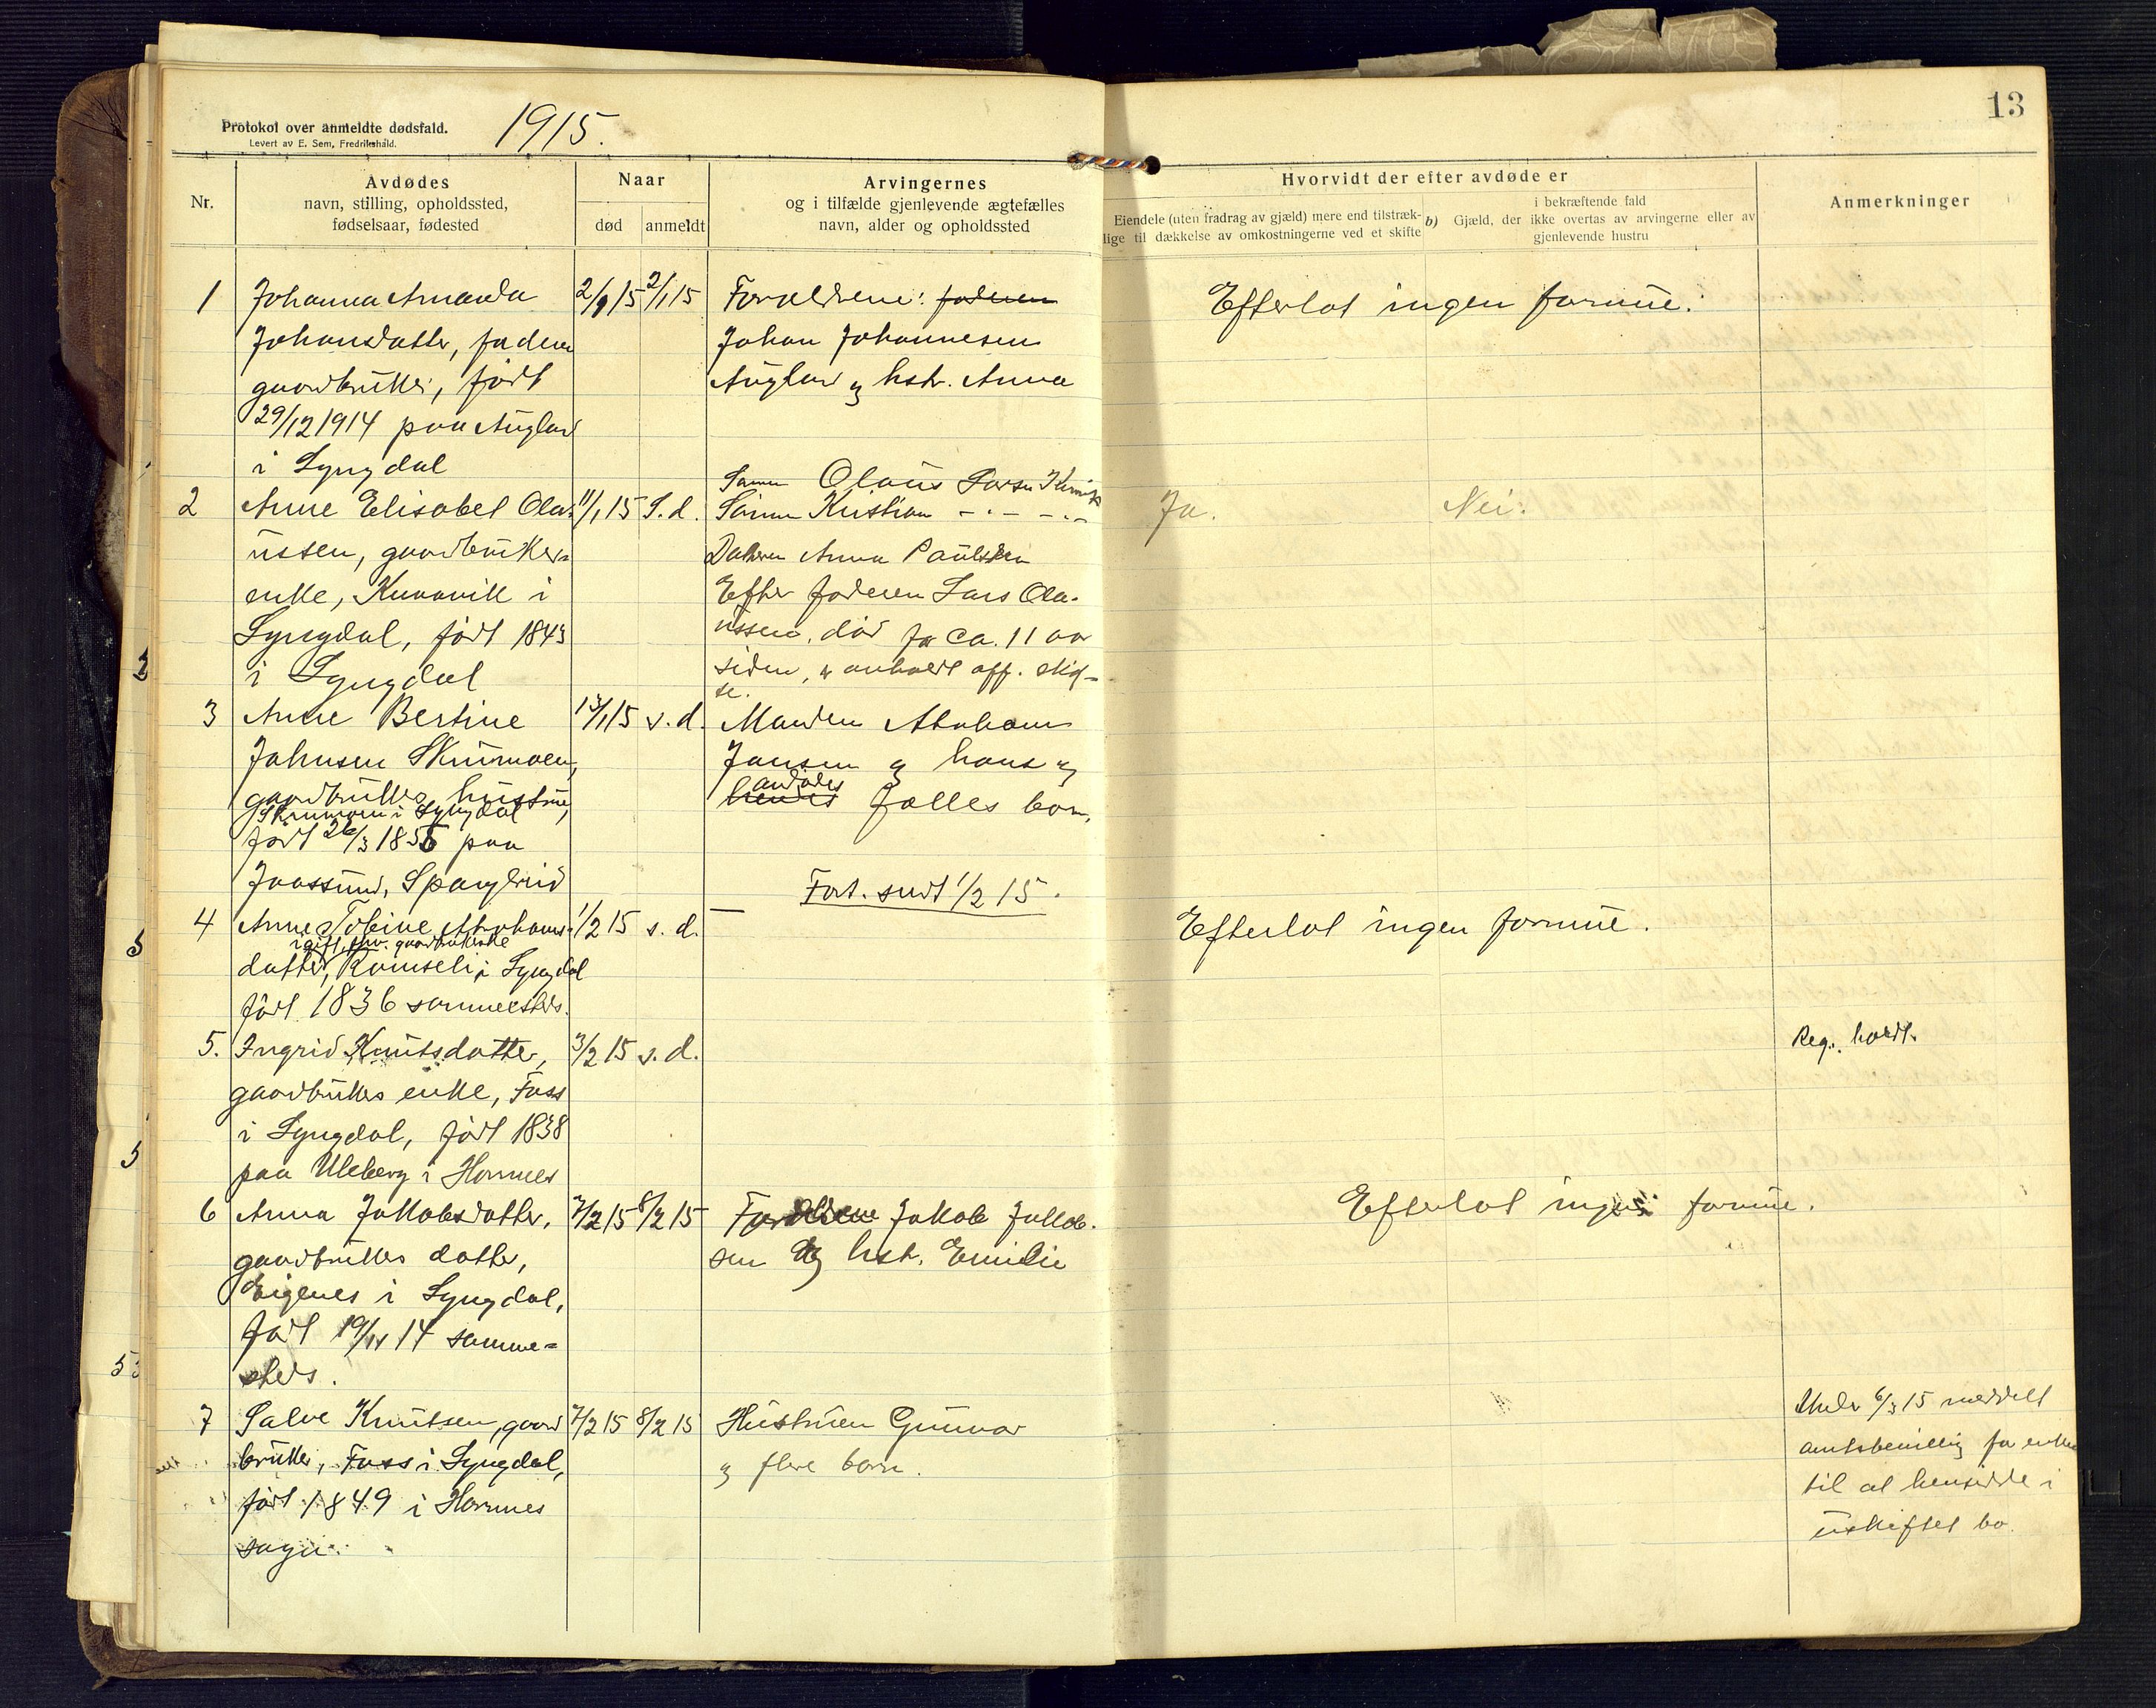 13
Protokol over anmeldte dødsfald.
Levert av E. Sem, Fredrikshald.
1915.
Nr.
Avdødes
navn, stilling, opholdssted,
fødselsaar, fødested
Naar
død
anmeldt
Arvingernes
og i tilfælde gjenlevende ægtefælles
navn, alder og opholdssted
Hvorvidt der efter avdøde er
Eiendele (uten fradrag av gjæld) mere end tilstræk-
lige til dækkelse av omkostningerne ved et skifte
i bekræftende fald
b) Gjæld, der ikke overtas av arvingerne eller av
gjenlevende hustru
Anmerkninger
1
Johanna Amanda
Johansdatter, faderen
gaardbruker, født
29/12 1914 paa Auglend
i Lyngdal
2/1 15
2/1 15
Forældrene: faderen
Johan Johannesen
Auglend og hstr. Anna
Efterlot ingen formue.
2
Anne Elisabet Ola-
ussen, gaardbruker-
enke, Kvavik i
Lyngdal, født 1843
i Lyngdal
11/1 15
S. d.
Sønnen Olaus Larsen Kvavik
Sønnen Kristian -·- -·-
Datteren Anna Paulsen
Efter faderen Lars Ola-
ussen, død for ca. 11 aar
siden, er avholdt off. skif-
te.
Ja.
Nei.
3
Anne Bertine
Johnsen Skrumoen,
gaardbrukers hustru,
Skrumoen i Lyngdal
født 26/3 1855 paa
Jaassund, Spangereid
13/1 15
s. d.
Manden Abraham
Jansen og hans og
avdødes
hendes fælles barn.
Fort. sendt 1/2 15.
4
Anne Tobine Abrahams-
ugift, fhv. gaardbrukerske
datter, Romseli i Lyngdal
født 1836 sammesteds.
1/2 15
s. d.
—
Efterlot ingen formue.
5.
Ingrid Knutsdatter,
gaardbrukers enke, Foss
i Lyngdal, født 1838
paa Uleberg i Hornnes
3/2 15
s. d.
Reg. holdt.
6
Anna Jakobsdatter,
gaardbrukers datter,
Eigenes i Lyngdal,
født 19/11 14 samme-
steds.
7/2 15
8/2 15
Forældrene Jakob Jakob-
sen og hstr. Emilie
Efterlot ingen formue.
7
Salve Knutsen, gaard
bruker, Foss i Lyngdal,
født 1849 i Hornnes
sogn.
7/2 15
8/2 15
Hustruen Gunvor
og flere barn.
Under 6/3 15 meddelt
amtsbevilling for enken
til at hensidde i
uskiftet bo.